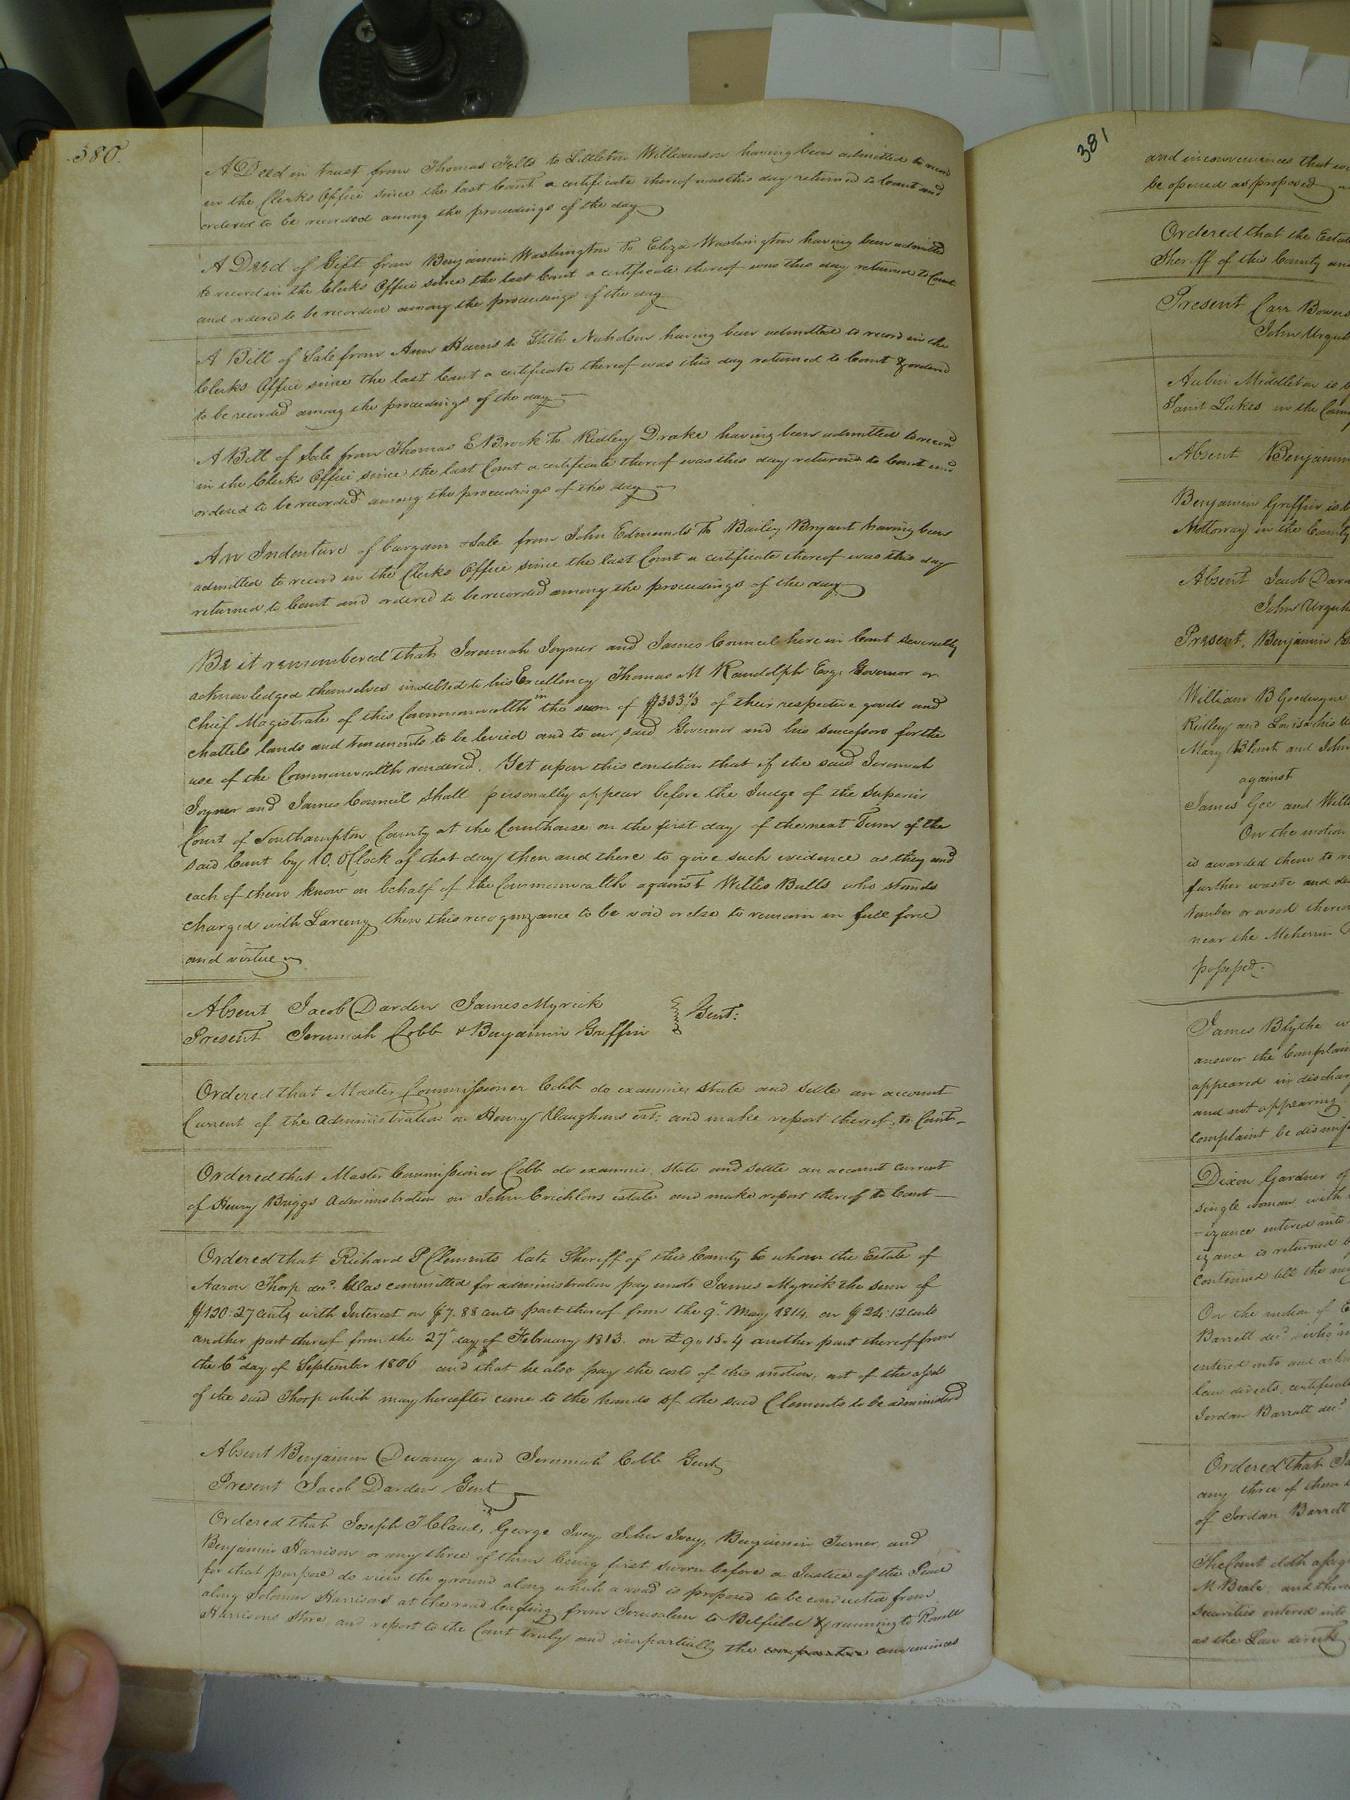 380.
A Deed in trust from Thomas Felts to Littleton Williamson having been admitted to record
in the Clerks Office since the last Court a certificate thereof was this day returned to Court and
ordered to be recorded among the proceedings of the day
A Deed of Gift from Benjamin Washington to Eliza Washington having been admitted
to record in the Clerks Office since the last Court a certificate thereof was this day returned to Court
and ordered to be recorded among the proceedings of the day
A Bill of Sale from Ann Harris to Nicholson having been admitted to record in the
Clerks Office since the last Court a certificate thereof was this day returned to Court & ordered
to be recorded among the proceedings of the day
A Bill of Sale from Thomas E Brock to Ridley Drake having been admitted to record
in the Clerks Office since the last Court a certificate thereof was this day returned to Court and
ordered to be recorded among the proceedings of the day
An Indenture of bargain & Sale from John Edmunds to Bailey Bryant having been
admitted to record in the Clerks Office since the last Court a certificate thereof was this day
returned to Court and ordered to be recorded among the proceedings of the day
Be it remembered that Jeremiah Joyner and James Council here in Court severally
acknowledged themselves indebted to his Excellency Thomas M Randolph Esq. Governor or
Chief Magistrate of this Commonwealth in the sum of $333 1/3 of their respective goods and
chattels lands and tenements to be levied and to our said Governor and his successors for the
use of the Commonwealth rendered. Yet upon this condition that if the said Jeremiah
Joyner and James Council shall personally appear before the Judge of the Superior
Court of Southampton County at the Courthouse on the first day of the next Term of the
said Court by 10. O'Clock of that day then and there to give such evidence as they and
each of them know on behalf of the Commonwealth against Willis Butts who stands
charged with Larceny then this recognizance to be void or else to remain in full force
and virtue
Absent Jacob Darden James Myrick
Present Jeremiah Cobb & Benjamin Griffin Gent:
Ordered that Master Commissioner Cobb do examine, state and settle an account
Current of the administration on Henry Vaughans est: and make report thereof to Court
Ordered that Master Commissioner Cobb do examine, state and settle an account current
of Henry Briggs administration on John Crichlows estate and make report thereof to Court
Ordered that Richard P Clements late Sheriff of this County to whom the Estate of
Aaron Thorp decd. was committed for administration pay unto James Myrick the sum of
$130.27 cents with Interest on $7.88 cents part thereof from the 9th May 1814. on $24.12 cents
another part thereof from the 27th day of February 1813. on £9.15.4 another part thereof from
the 6th day of September 1806 and that he also pay the costs of this motion, out of the assets
of the said Thorp which may hereafter come to the hands of the said Clements to be administered
Absent Benjamin Devany and Jeremiah Cobb Gent
Present Jacob Darden Gent
Ordered that Joseph T Claud, George Ivey, John Ivey, Benjamin Turner, and
Benjamin Harrison or any three of them being first sworn before a Justice of the Peace
for that purpose do view the ground along which a road is proposed to be conducted from
along Solomon Harrisons at the road leading from Jerusalem to Belfield & running to
Harrisons Store, and report to the Court truly and impartially the conveniences
381
and inconveniences that
be opened as proposed
Ordered that the Estate
Sheriff of this County
Present Carr Bowers
John Urquh
Aubin Middleton is
Saint Lukes in the
Absent Benjamin
Benjamin Griffin is
Nottoway in the County
Absent Jacob Dard
John Urquh
Present, Benjamin
William B Goodwyn
Ridley and Louisa his
Mary Blunt and John
against
James Gee and Will
On the motion
is awarded them to
further waste and de
timber or wood there
near the Meherrin
possessed.
James Blythe
answer the Complain
appeared in discharge
and not appearing
complaint be dismiss
Dixon Gardner of
single woman with
izance entered into
izance is returned
continued till the
On the motion of
Barrett decd. who
entered into and
law directs, certificate
Jordan Barrett decd.
Ordered that
any three of them
of Jordan Barrett
The Court doth
M. Beale, and
securities entered into
as the Law directs